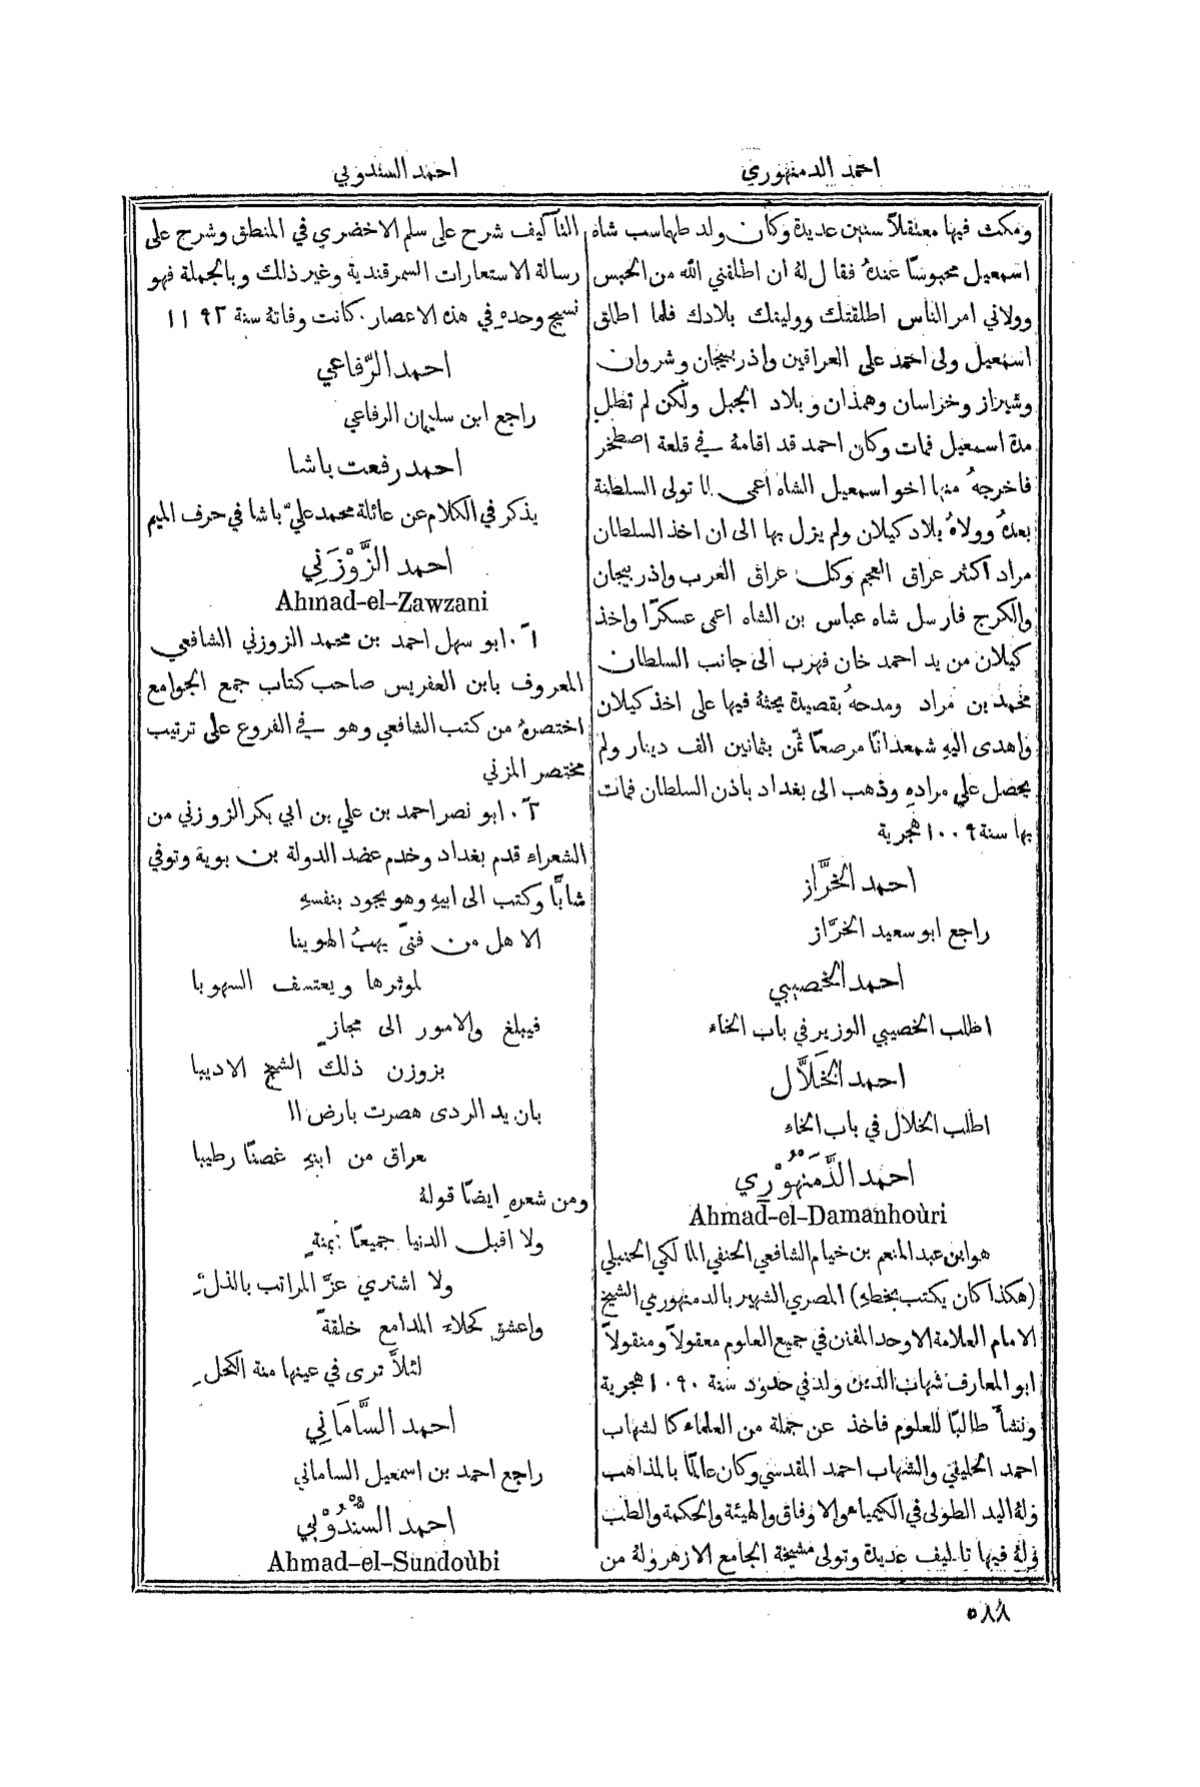 احمد الدمنهوري
احمد السندوبي
ومكث فيها معتقلاً سنين عديدة وكان ولد طهماسب شاه
اسمعيل محبوسًا عندهُ فقال لهُ ان اطلقني الله من الحبس
وولاني امر الناس اطلقتك ووليتك بلادك فلما اطلق
اسمعيل ولى احمد على العراقين واذربيجان وشروان
وشيراز وخراسان وهمذان وبلاد الجبل ولكن لم تطل
مدة اسمعيل فمات وكان احمد قد اقامهُ في قلعة اصطخر
فاخرجهُ منها اخو اسمعيل الشاه اعمى لما تولى السلطنة
بعدهُ وولاهُ بلاد كيلان ولم يزل بها الى ان اخذ السلطان
مراد اكثر عراق العجم وكل عراق العرب واذربيجان
والكرج فارسل شاه عباس بن الشاه اعمى عسكرًا واخذ
كيلان من يد احمد خان فهرب الى جانب السلطان
محمد بن مراد ومدحهُ بقصيدة يحثهُ فيها على اخذ كيلان
واهدى اليهِ شمعدانًا مرصعًا ثمّن بثمانين الف دينار ولم
يحصل على مرادهِ وذهب الى بغداد باذن السلطان فمات
بها سنة ١٠٠٩ هجرية
احمد الخرَّاز
راجع ابو سعيد الخرَّاز
احمد الخصيبي
اطلب الخصيبي الوزير في باب الخاء
احمد الخَلَّال
اطلب الخلال في باب الخاء
احمد الدَّمَنْهُوْرِي
Ahmad-el-Damanhoùri
هو ابن عبد المنعم بن خيام الشافعي الحنفي المالكي الحنبلي
(هكذا كان يكتب بخطهِ) المصري الشهير بالدمنهوري الشيخ
الامام العلامة الاوحد المفنن في جميع العلوم معقولاً ومنقولاً
ابو المعارف شهاب الدين ولد في حدود سنة ١٠٩٠ هجرية
ونشأ طالبًا للعلوم فاخذ عن جملة من العلماء كالشهاب
احمد الخليفي والشهاب احمد المقدسي وكان عالمًا بالمذاهب
ولهُ اليد الطولى في الكيمياء والاوفاق والهيئة والحكمة والطب
ولهُ فيها تاليف عديدة وتولى مشيخة الجامع الازهر ولهُ من
التآليف شرح على سلم الاخضري في المنطق وشرح على
رسالة الاستعارات السمرقندية وغير ذلك وبالجملة فهو
نسيج وحدهِ في هذه الاعصار. كانت وفاتهُ سنة ١١٩٢
احمد الرّفاعي
راجع ابن سليمان الرفاعي
احمد رفعت باشا
يذكر في الكلام عن عائلة محمد علي باشا في حرف الميم
احمد الزَّوْزَنِي
Ahmad-el-Zawzani
١ً. ابو سهل احمد بن محمد الزوزني الشافعي
المعروف بابن العفريس صاحب كتاب جمع الجوامع
اختصرهُ من كتب الشافعي وهو في الفروع على ترتيب
مختصر المزني
٢ً. ابو نصر احمد بن علي بن ابي بكر الزوزني من
الشعراء قدم بغداد وخدم عضد الدولة بن بوية وتوفي
شابًّا وكتب الى ابيهِ وهو يجود بنفسهِ
الا هل من فتىً يهبُ الهوينا
لموثرها ويعتسف السهوبا
فيبلغ والامور الى مجازٍ
بزوزن ذلك الشيخ الاديبا
بان يد الردى هصرت بارض ال
عراق من ابنهِ غصنًا رطيبا
ومن شعرهِ ايضًا قولهُ
ولا اقبل الدنيا جميعًا بمنةٍ
ولا اشتري عزَّ المراتب بالذلّ
واعشق كحلاء المدامع خلقةً
لئلاَّ ترى في عينها منة الكحلِ
احمد السَّامَانِي
راجع احمد بن اسمعيل الساماني
احمد السُّنْدُوْبِي
Ahmad-el-Sundoùbi
٥٨٨